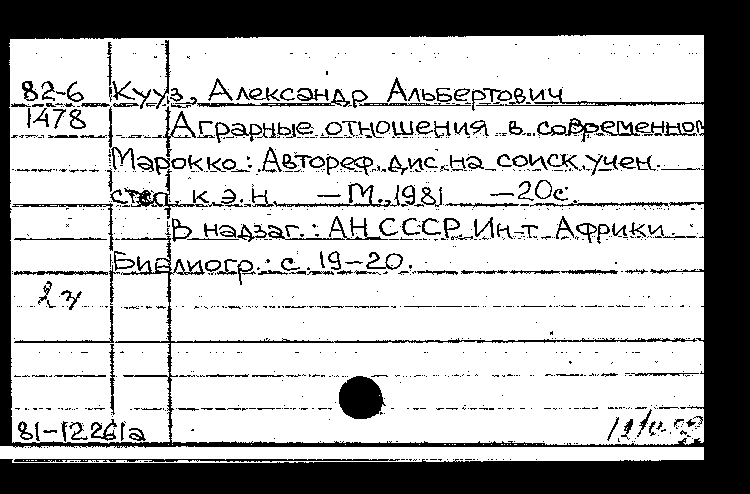 82-6 Кууз, Александр Альбертович
1478 Аграрные отношения в современном
Марокко: Автореф. дис. на соиск. учен.
степ. к. э. н. — М., 1981 — 20с.
В надзаг.: АН СССР. Ин-т Африки.
Библиогр.: с. 19-20.
81-12261а